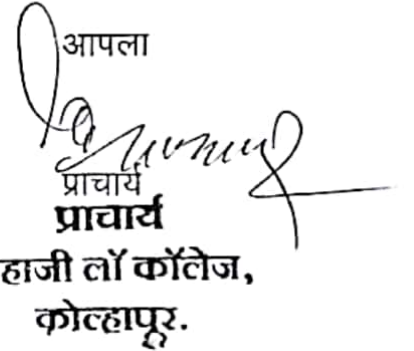 आपला
प्राचार्य
प्राचार्य
हाजी लॉ कॉलेज,
कोल्हापूर.